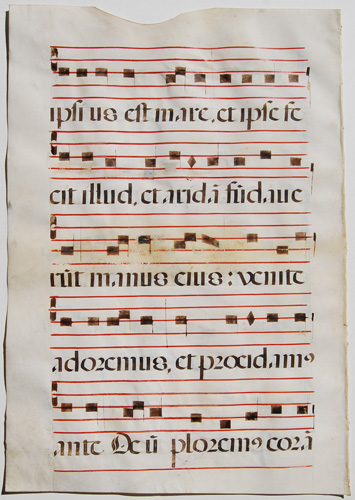 ipsius est mare, et ipse fe
cit illud, et aridā fūdave
rūt manus eius: venite
adoremus, et procidamꝰ
ante Deū ploremꝰ corā